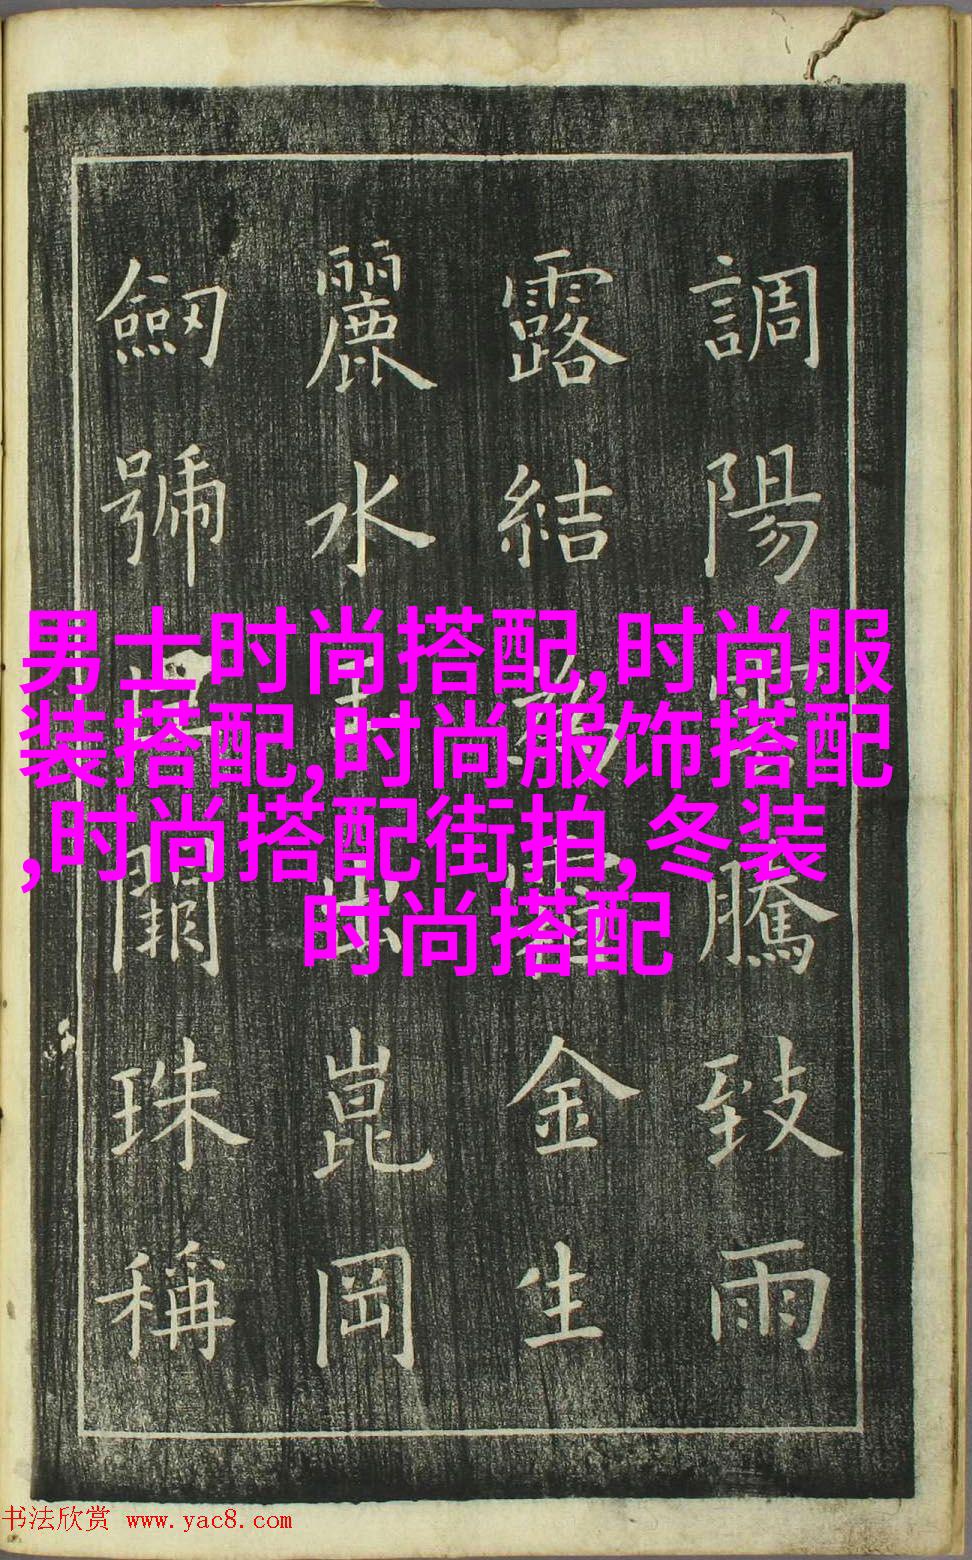 調陽雲騰致雨
露結為霜金生
麗水玉出崑岡
劒號巨闕珠稱
男士时尚搭配,时尚服
装搭配,时尚服饰搭配
,时尚搭配街拍,冬装
时尚搭配
书法欣赏 www.yac8.com